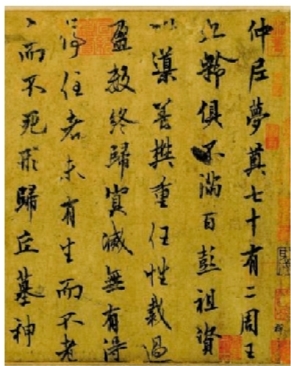 仲尼夢奠七十有二周王
九齡俱不滿百彭祖資
以導養樊重任性裁過
盈數終歸冥滅無有得
停住者未有生而不老
老而不死形歸丘墓神